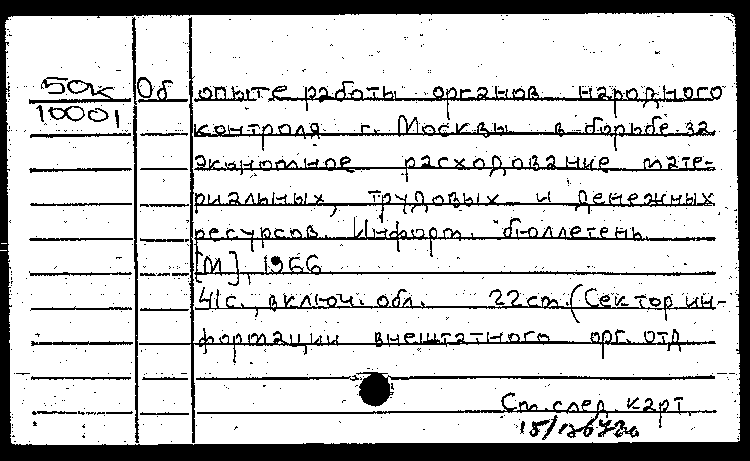 50к Об опыте работы органов народного
10001 контроля г. Москвы в борьбе за
экономное расходование мате-
риальных, трудовых и денежных
ресурсов. Информ. бюллетень
[М], 1966
41с., включ. обл. 22см. (Сектор ин-
формации внештатного орг. отд
См. след. карт.